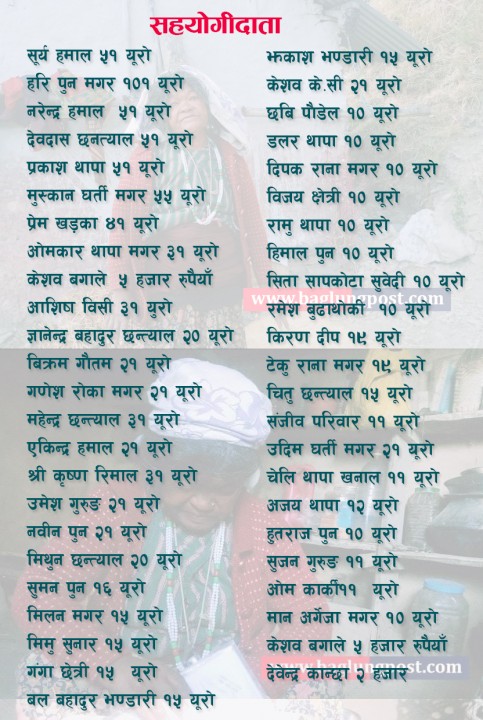 सहयोगीदाता
सूर्य हमाल ५१ यूरो
हरि पुन मगर १०१ यूरो
नरेन्द्र हमाल ५१ यूरो
देवदास छनत्याल ५१ यूरो
प्रकाश थापा ५१ यूरो
मुस्कान घर्ती मगर ५५ यूरो
प्रेम खड्का ४१ यूरो
ओमकार थापा मगर ३१ यूरो
केशव बगाले ५ हजार रुपैयाँ
आशिष विसी ३१ युरो
ज्ञानेन्द्र बहादुर छन्त्याल २० यूरो
बिक्रम गौतम २१ यूरो
गणेश रोका मगर २१ यूरो
महेन्द्र छन्त्याल ३१ यूरो
एकिन्द्र हमाल २१ यूरो
श्री कृष्ण रिमाल ३१ यूरो
उमेश गुरुङ २१ यूरो
नवीन पुन २१ यूरो
मिथुन छन्त्याल २० यूरो
सुमन पुन १६ यूरो
मिलन मगर १५ यूरो
मिमु सुनार १५ यूरो
गंगा छेत्री १५ यूरो
बल बहादुर भण्डारी १५ यूरो
झकाश भण्डारी १५ यूरो
केशव के.सी २१ यूरो
छबि पौडेल १० यूरो
डलर थापा १० यूरो
दिपक राना मगर १० यूरो
विजय क्षेत्री १० यूरो
रामु थापा १० यूरो
हिमाल पुन १० यूरो
सिता सापकोटा सुवेदी १० यूरो
www.baglungpost.com
रमेश बुढाथोकी १० यूरो
किरण दीप १९ यूरो
टेकु राना मगर १९ यूरो
चितु छन्त्याल १५ यूरो
संजीव परिवार ११ यूरो
उदिम घर्ती मगर २१ यूरो
चेलि थापा खनाल ११ यूरो
अजय थापा १२ यूरो
हुतराज पुन १० यूरो
सुजन गुरुङ ११ यूरो
ओम कार्की११ यूरो
मान अर्गेजा मगर १० यूरो
केशव बगाले ५ हजार रुपैयाँ
www.baglungpost.com
देवेन्द्र कान्छा २ हजार